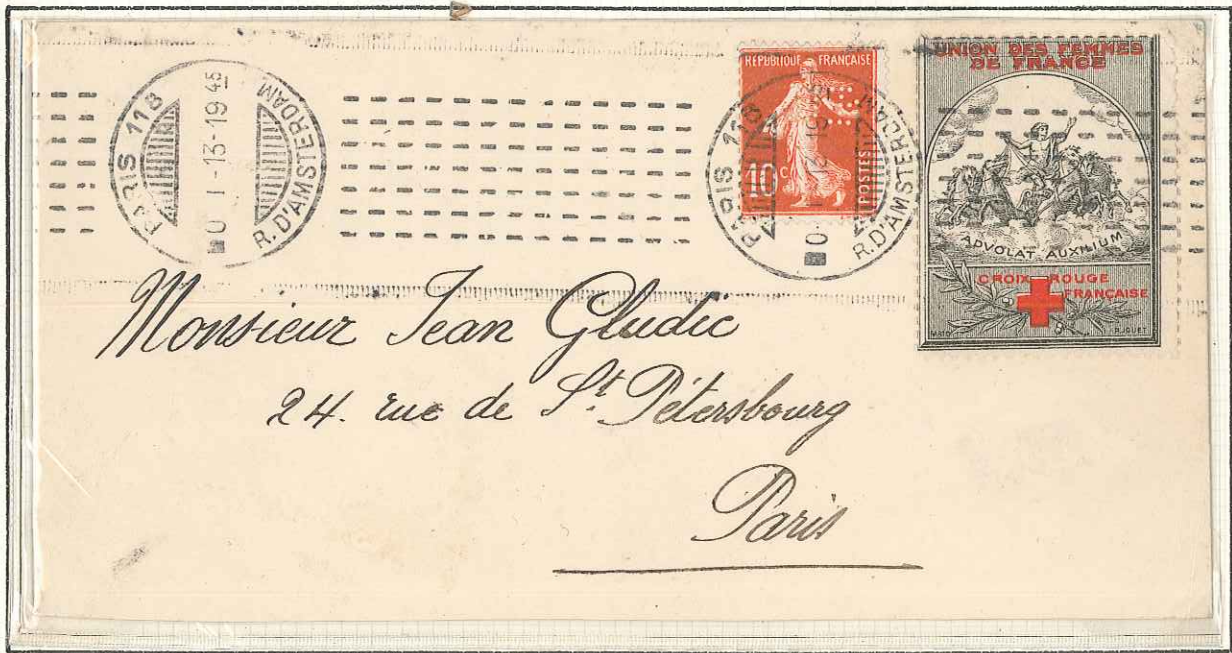 PARIS 118
0 1-13-19 45
R. D'AMSTERDAM
RÉPUBLIQUE FRANÇAISE
10 C
POSTES
PARIS 118
R. D'AMSTERDAM
UNION DES FEMMES
DE FRANCE
ADVOLAT AUXILIUM
CROIX ROUGE
FRANÇAISE
Monsieur Jean Gludic
24. rue de St. Pétersbourg
Paris